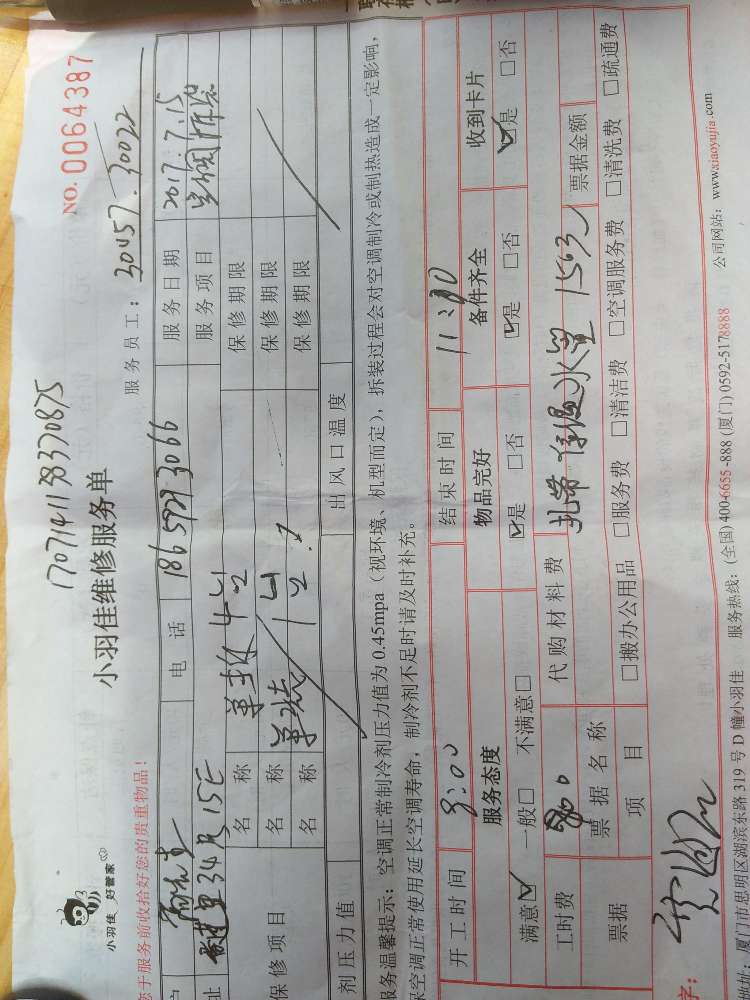 小羽佳 好管家
17071411 38370875
小羽佳维修服务单
NO. 0064387
您于服务前收拾好您的贵重物品!
服务员工: 30457. 30022
户
电话 186 5929 3066
服务日期 2017.7.15
址 34号 15E
服务项目 空调拆装
保修项目
名称 单拆 4台
保修期限
名称 单装 1台
保修期限
名称
保修期限
剂压力值
出风口温度
服务温馨提示: 空调正常制冷剂压力值为 0.45mpa (视环境、机型而定), 拆装过程会对空调制冷或制热造成一定影响,
保空调正常使用延长空调寿命, 制冷剂不足时请及时补充。
开工时间
结束时间
服务态度 物品完好 备件齐全 收到卡片
满意☑ 一般□ 不满意□ ☑是 □否 ☑是 □否 ☑是 □否
工时费
代购材料费 扎带 保温 水管
票据 票据名称
票据金额
项目 □搬办公用品 □服务费 □清洁费 □空调服务费 □清洗费 □疏通费
字:
地址: 厦门市思明区湖滨东路 319 号 D 幢小羽佳 服务热线: (全国) 400-6655-888 (厦门) 0592-5178888 公司网站: www.xiaoyujia.com